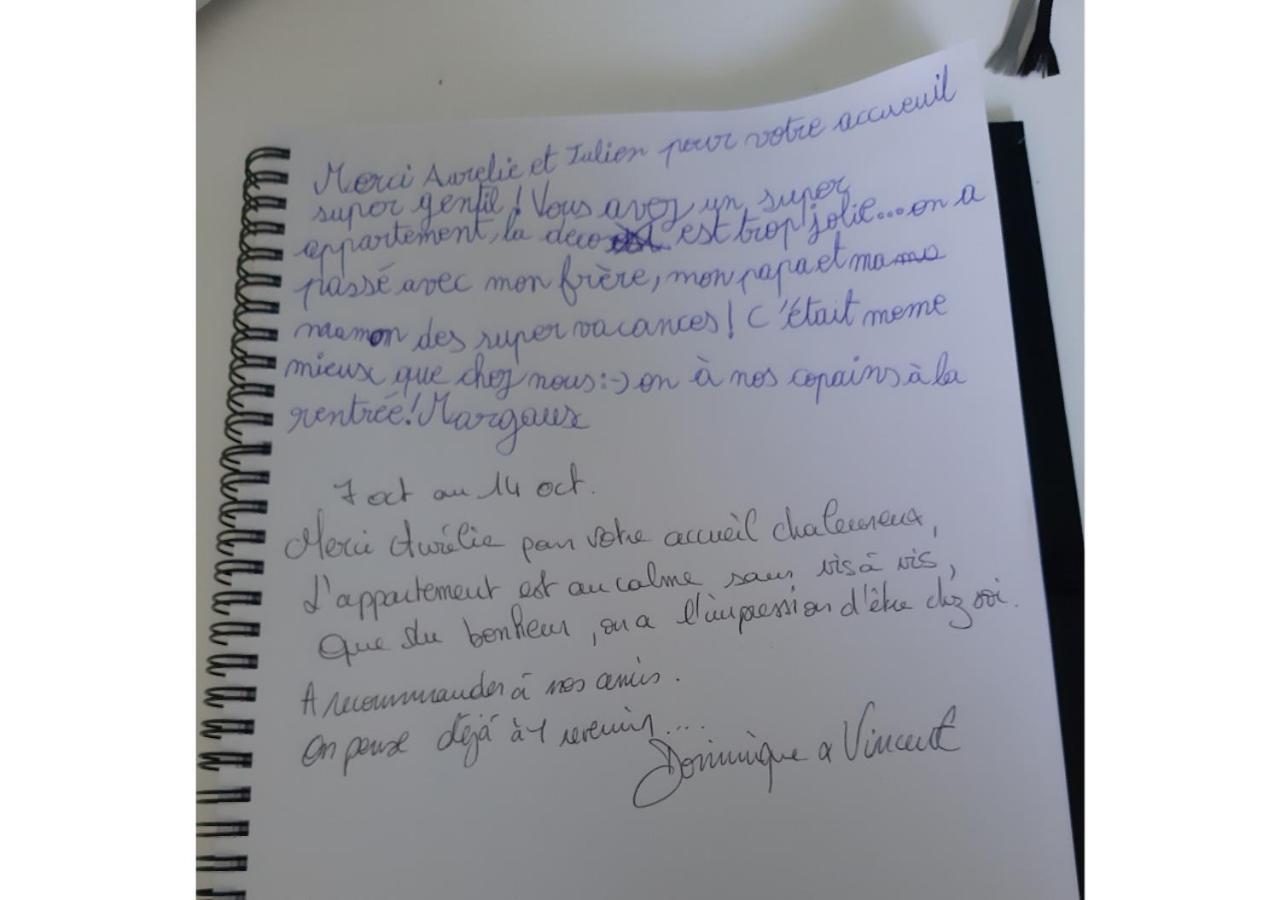 Merci Aurelie et Julien pour votre accueuil
super gentil ! Vous avez un super
appartement, la déco est trop jolie... on a
passé avec mon frère, mon papa et ma
maman des super vacances ! C'était meme
mieux que chez nous :-) on à nos copains à la
rentrée ! Margaux
7 oct au 14 oct.
Merci Aurélie pour votre accueil chaleureux,
L'appartement est au calme sans vis à vis,
Que du bonheur, on a l'impression d'être chez soi.
A recommander à nos amis.
On pense déjà à y revenir....
Dominique & Vincent